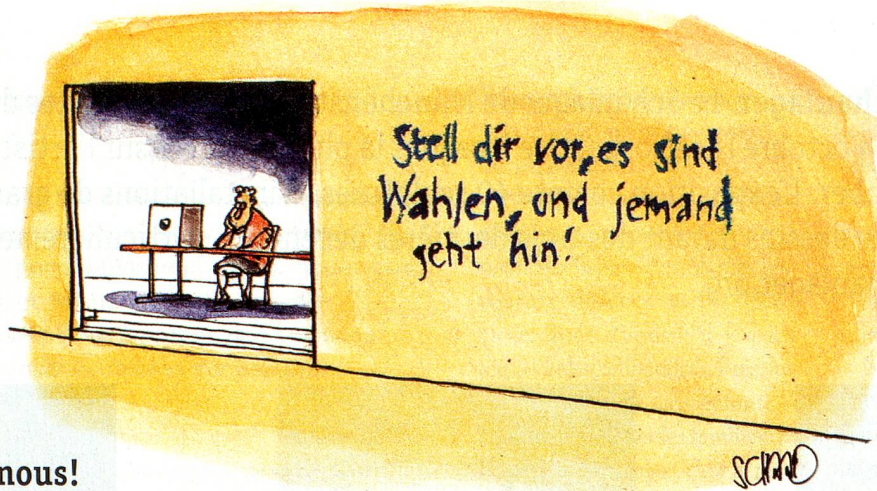 Stell dir vor, es sind
Wahlen, und jemand
geht hin!
SCHMID
nous!